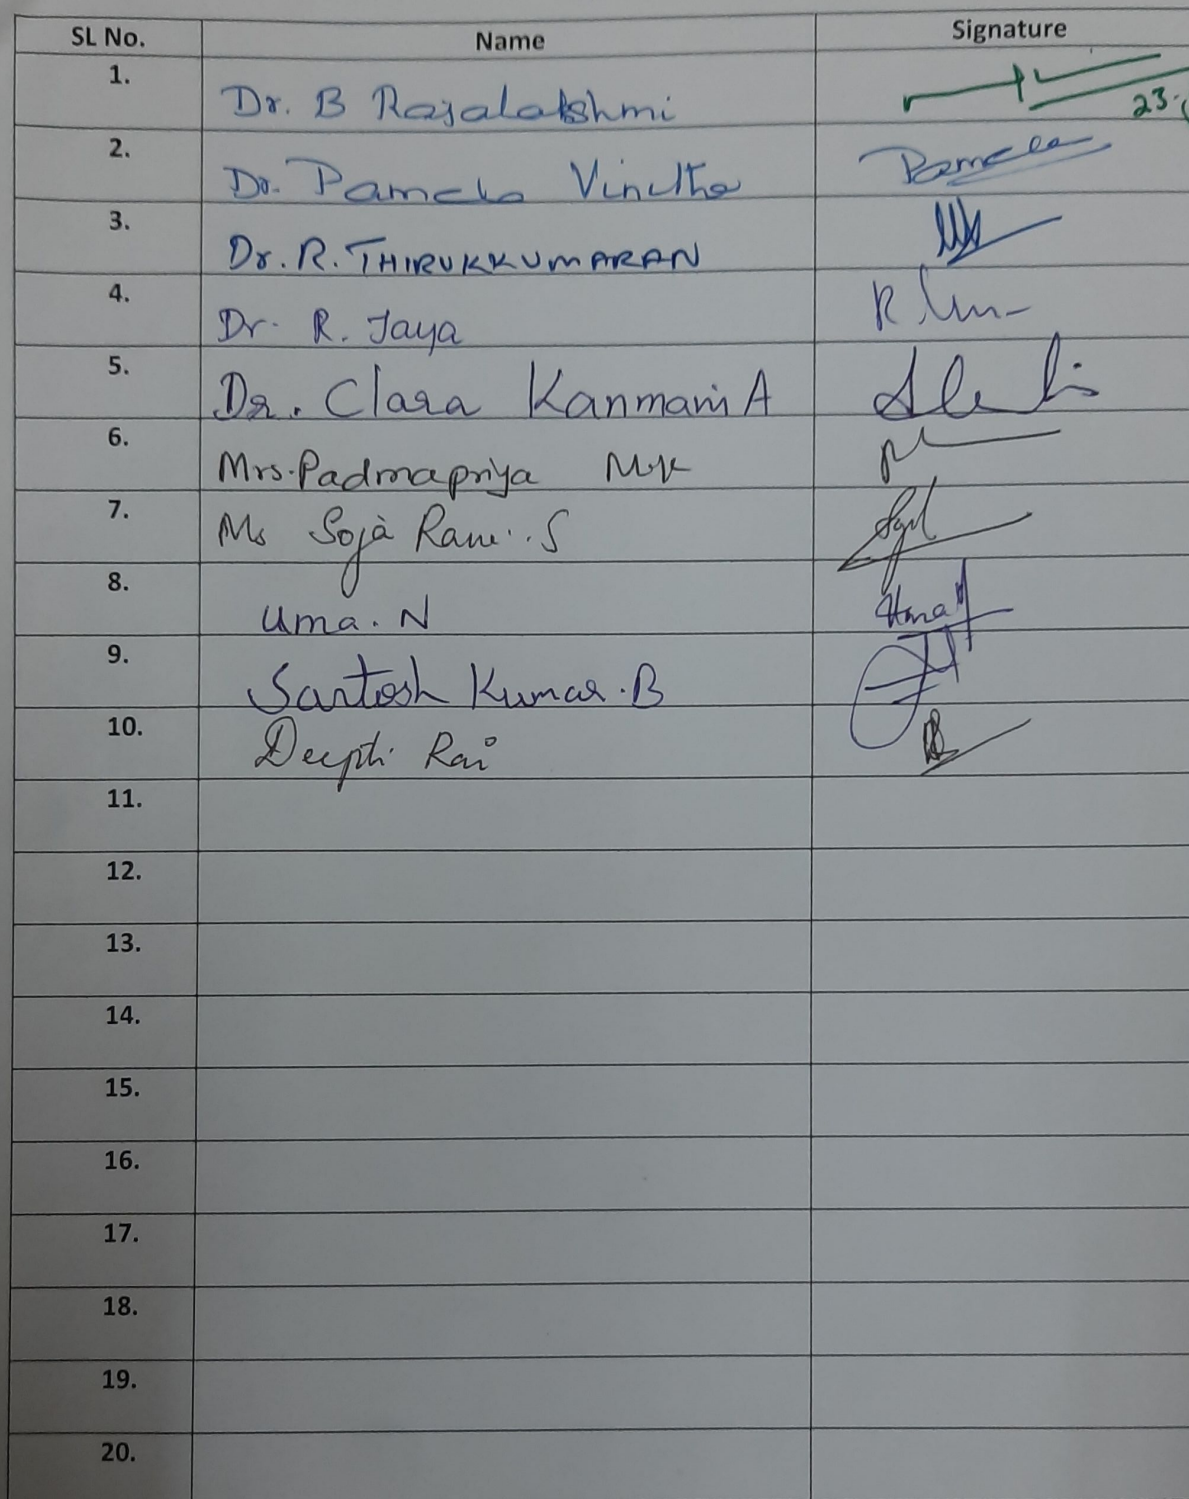 SL No. Name Signature
1. Dr. B Rajalakshmi 23.
2. Dr. Pamela Vinitha Pamela
3. Dr. R. THIRUKKUMARAN
4. Dr. R. Jaya
5. Dr. Clara Kanmani A
6. Mrs. Padmapriya M.K
7. Ms Soja Rani. S
8. Uma. N Uma
9. Santosh Kumar. B
10. Deepti Rai
11.
12.
13.
14.
15.
16.
17.
18.
19.
20.